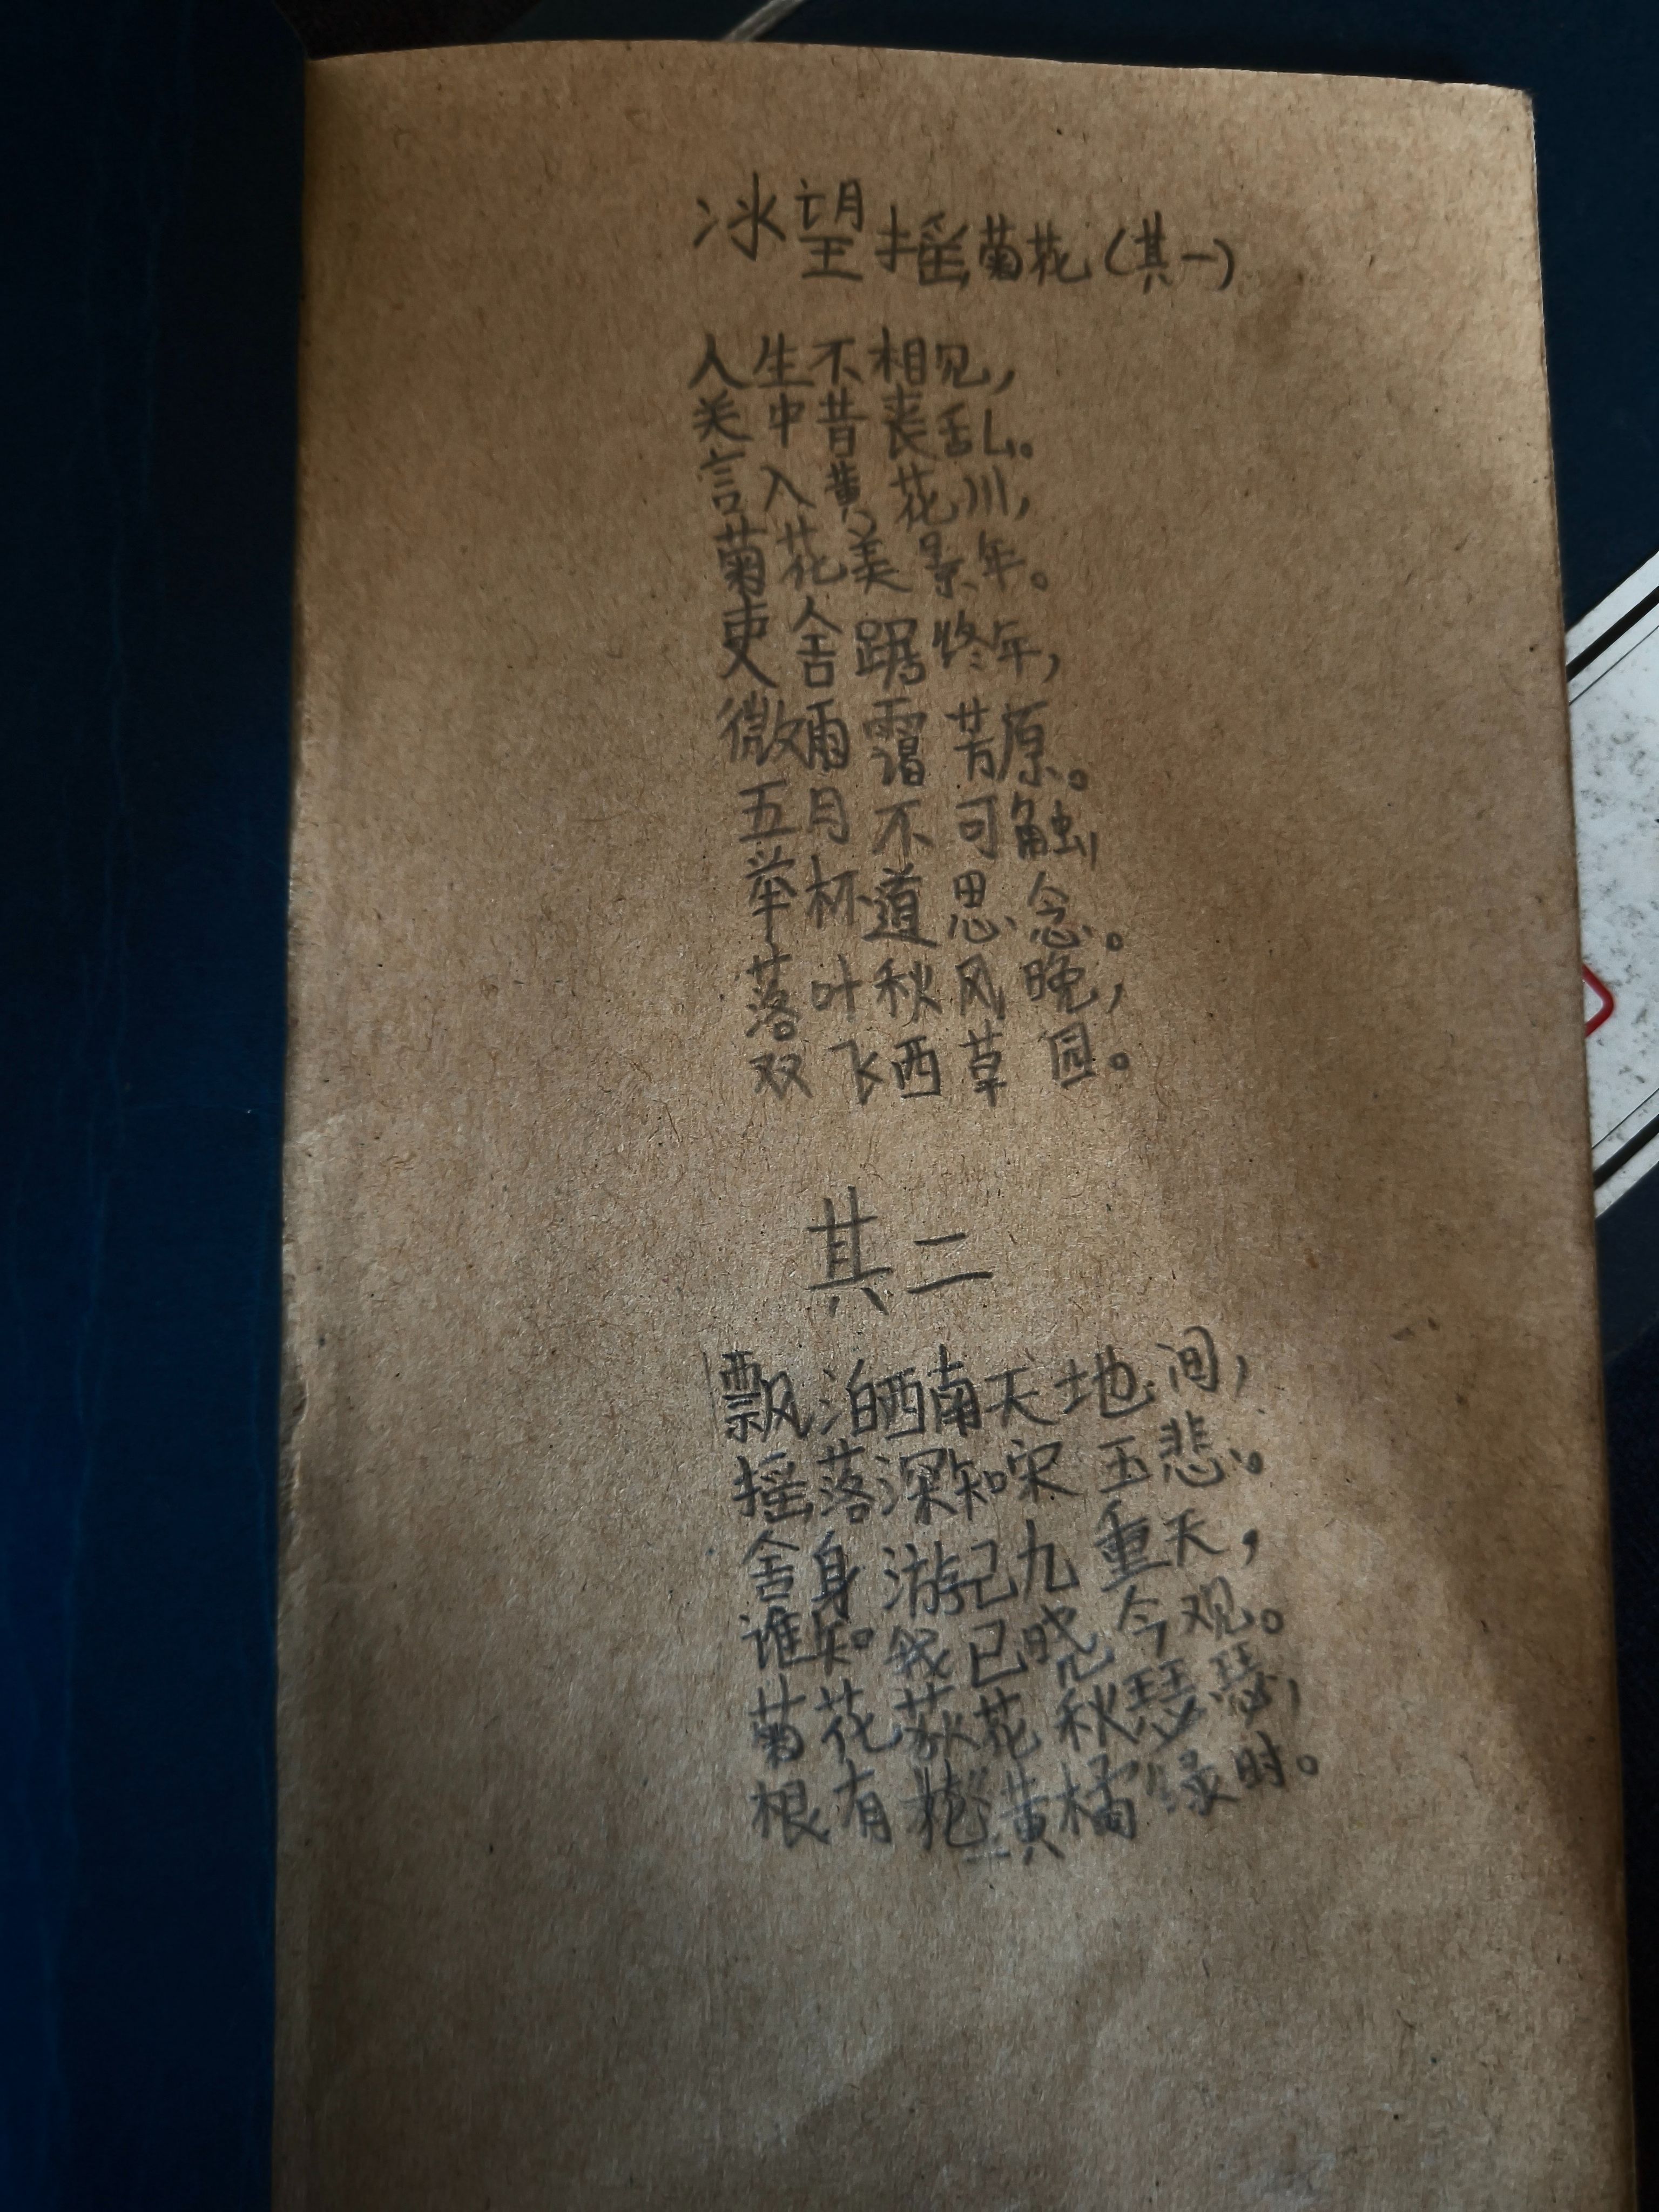 冰望摇菊花(其一)
人生不相见,
关中昔丧乱。
言入黄花川,
菊花美景年。
吏舍跼终年,
微雨霭芳原。
五月不可触,
举杯道思念。
落叶秋风晚,
双飞西草园。
其二
飘泊西南天地间,
摇落深知宋玉悲。
舍身游己九重天,
谁知我已晓今观。
菊花荻花秋瑟瑟,
根有花黄橘绿时。